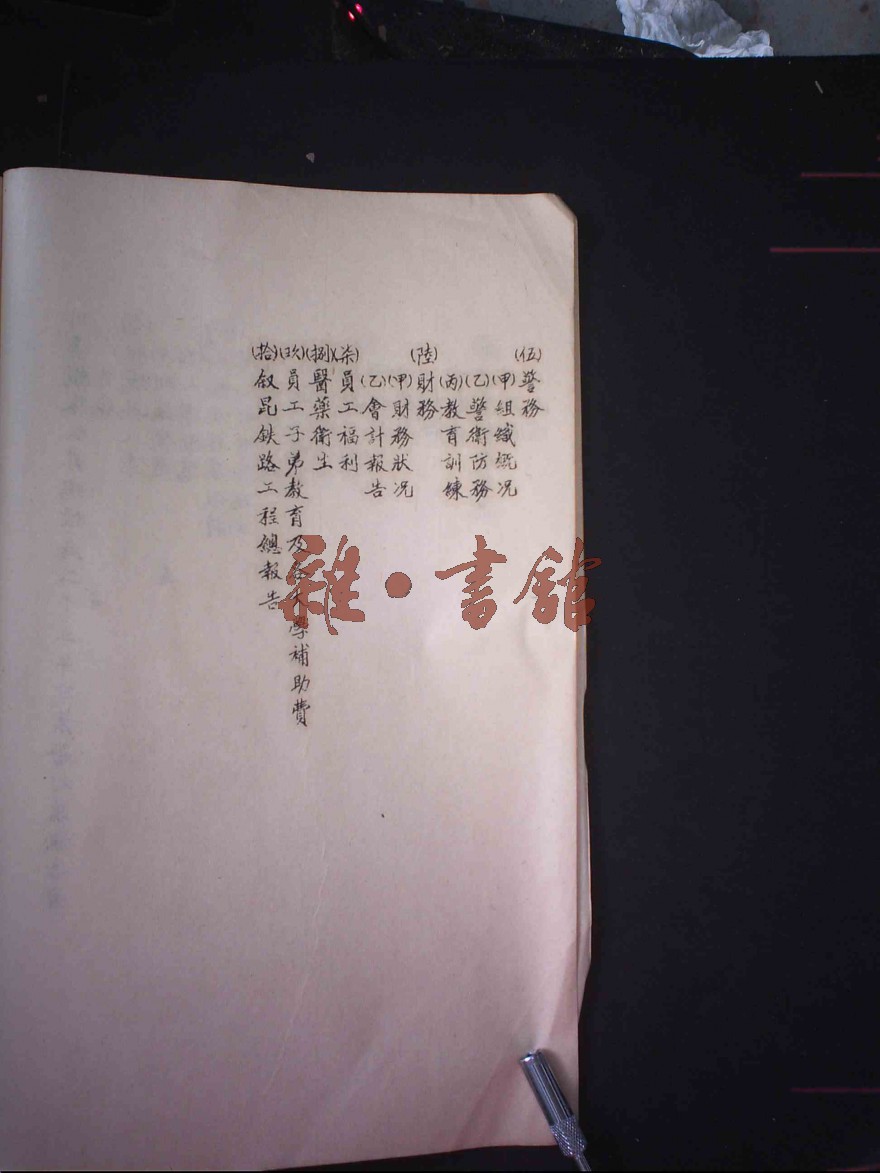 (伍)警務
(甲)組織概况
(乙)警衛防務
(丙)教育訓練
(陸)財務
(甲)財務狀况
(乙)會計報告
(柒)員工福利
(捌)醫藥衛生
(玖)員工子弟教育及各大學補助費
(拾)叙昆鉄路工程總報告
雜·書館